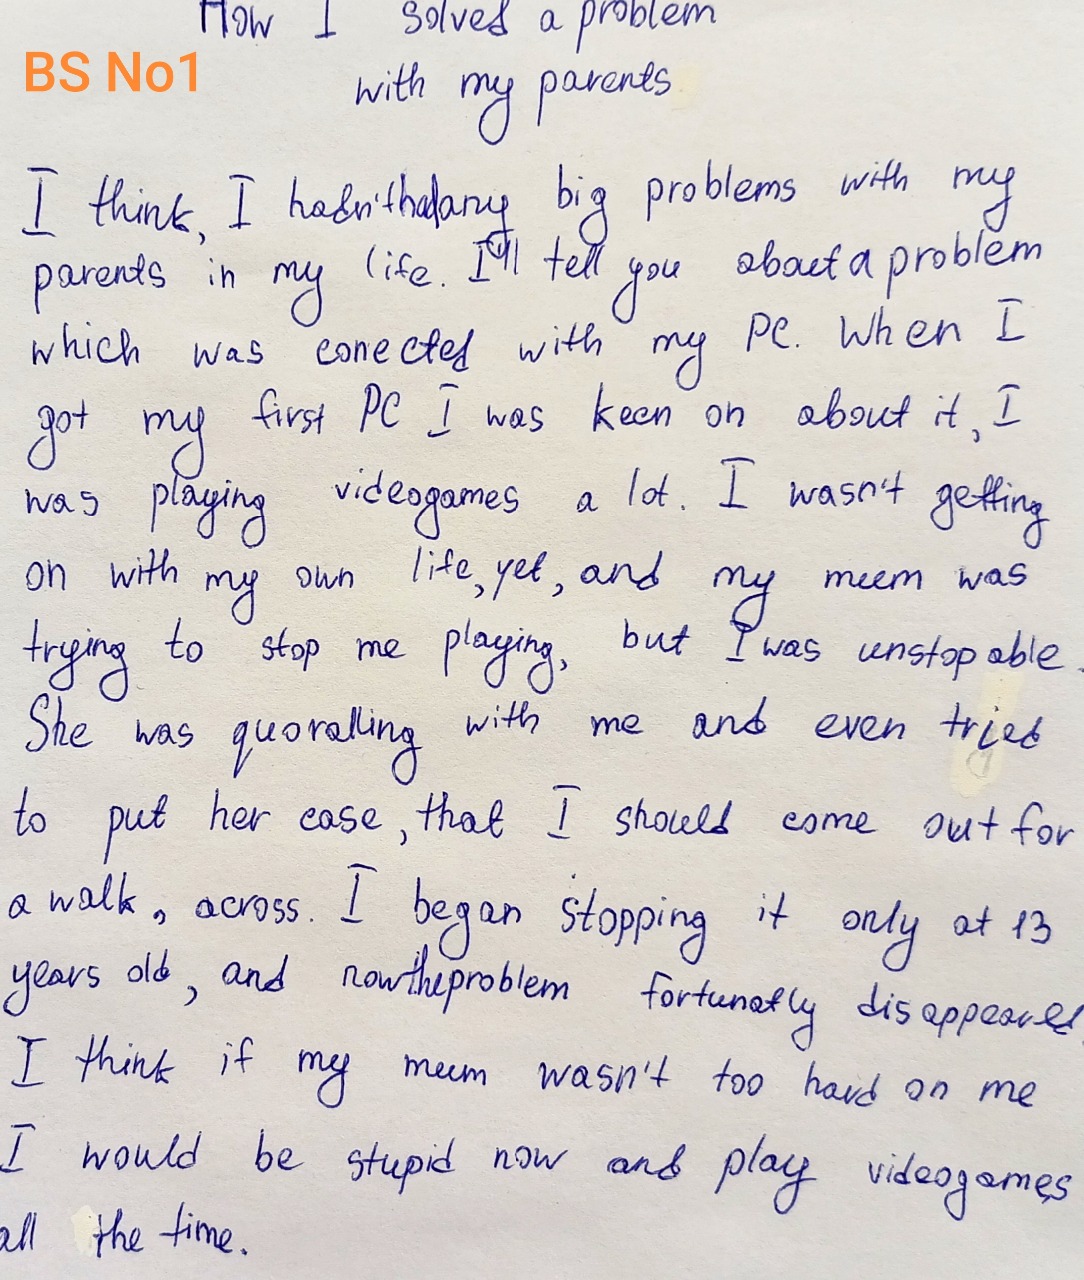 How I solved a problem
BS No1
with my parents
I think, I hadn't had any big problems with my
parents in my life. I'll tell you about a problem
which was conected with my PC. When I
got my first PC I was keen on about it, I
was playing videogames a lot. I wasn't getting
on with my own life, yet, and my mum was
trying to stop me playing, but I was unstopable.
She was quoralling with me and even tried
to put her case, that I should come out for
a walk, across. I began stopping it only at 13
years old, and now the problem fortunatly disappeared.
I think if my mum wasn't too hard on me
I would be stupid now and play videogames
all the time.